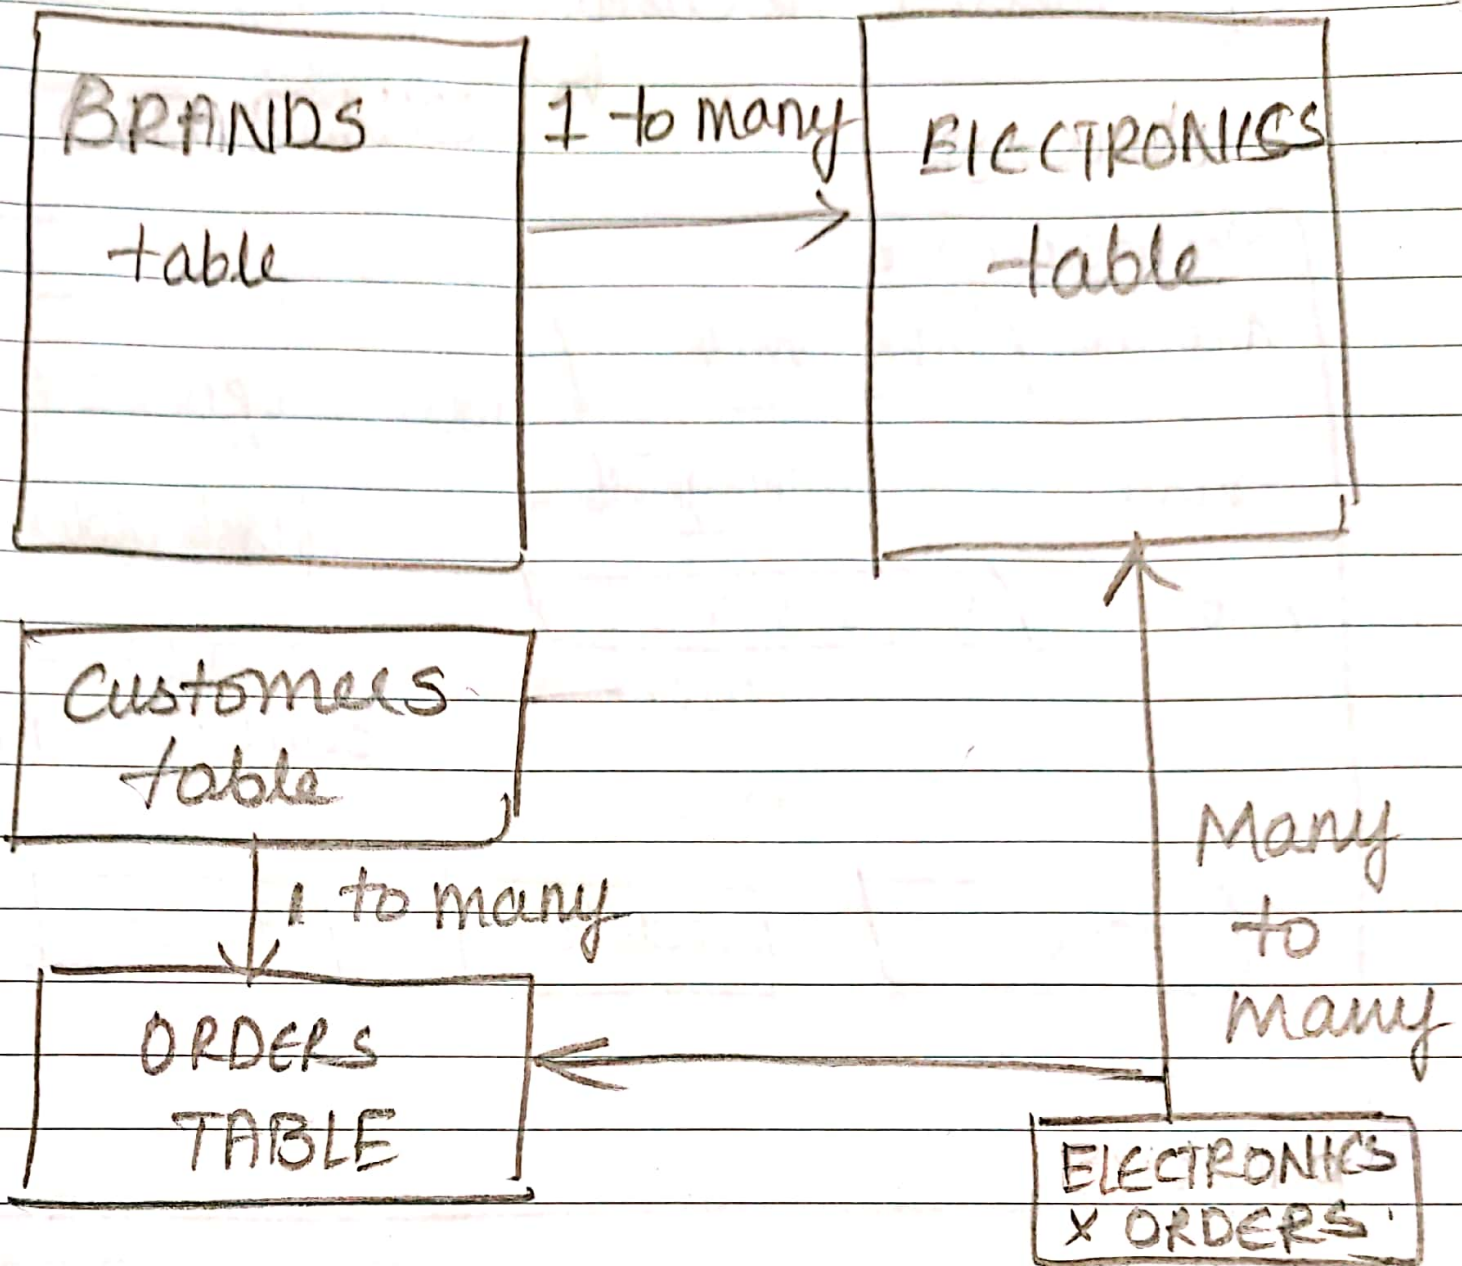 BRANDS
table
1 to many
ELECTRONICS
table
Customers
table
1 to many
ORDERS
TABLE
Many
to
Many
ELECTRONICS
X ORDERS